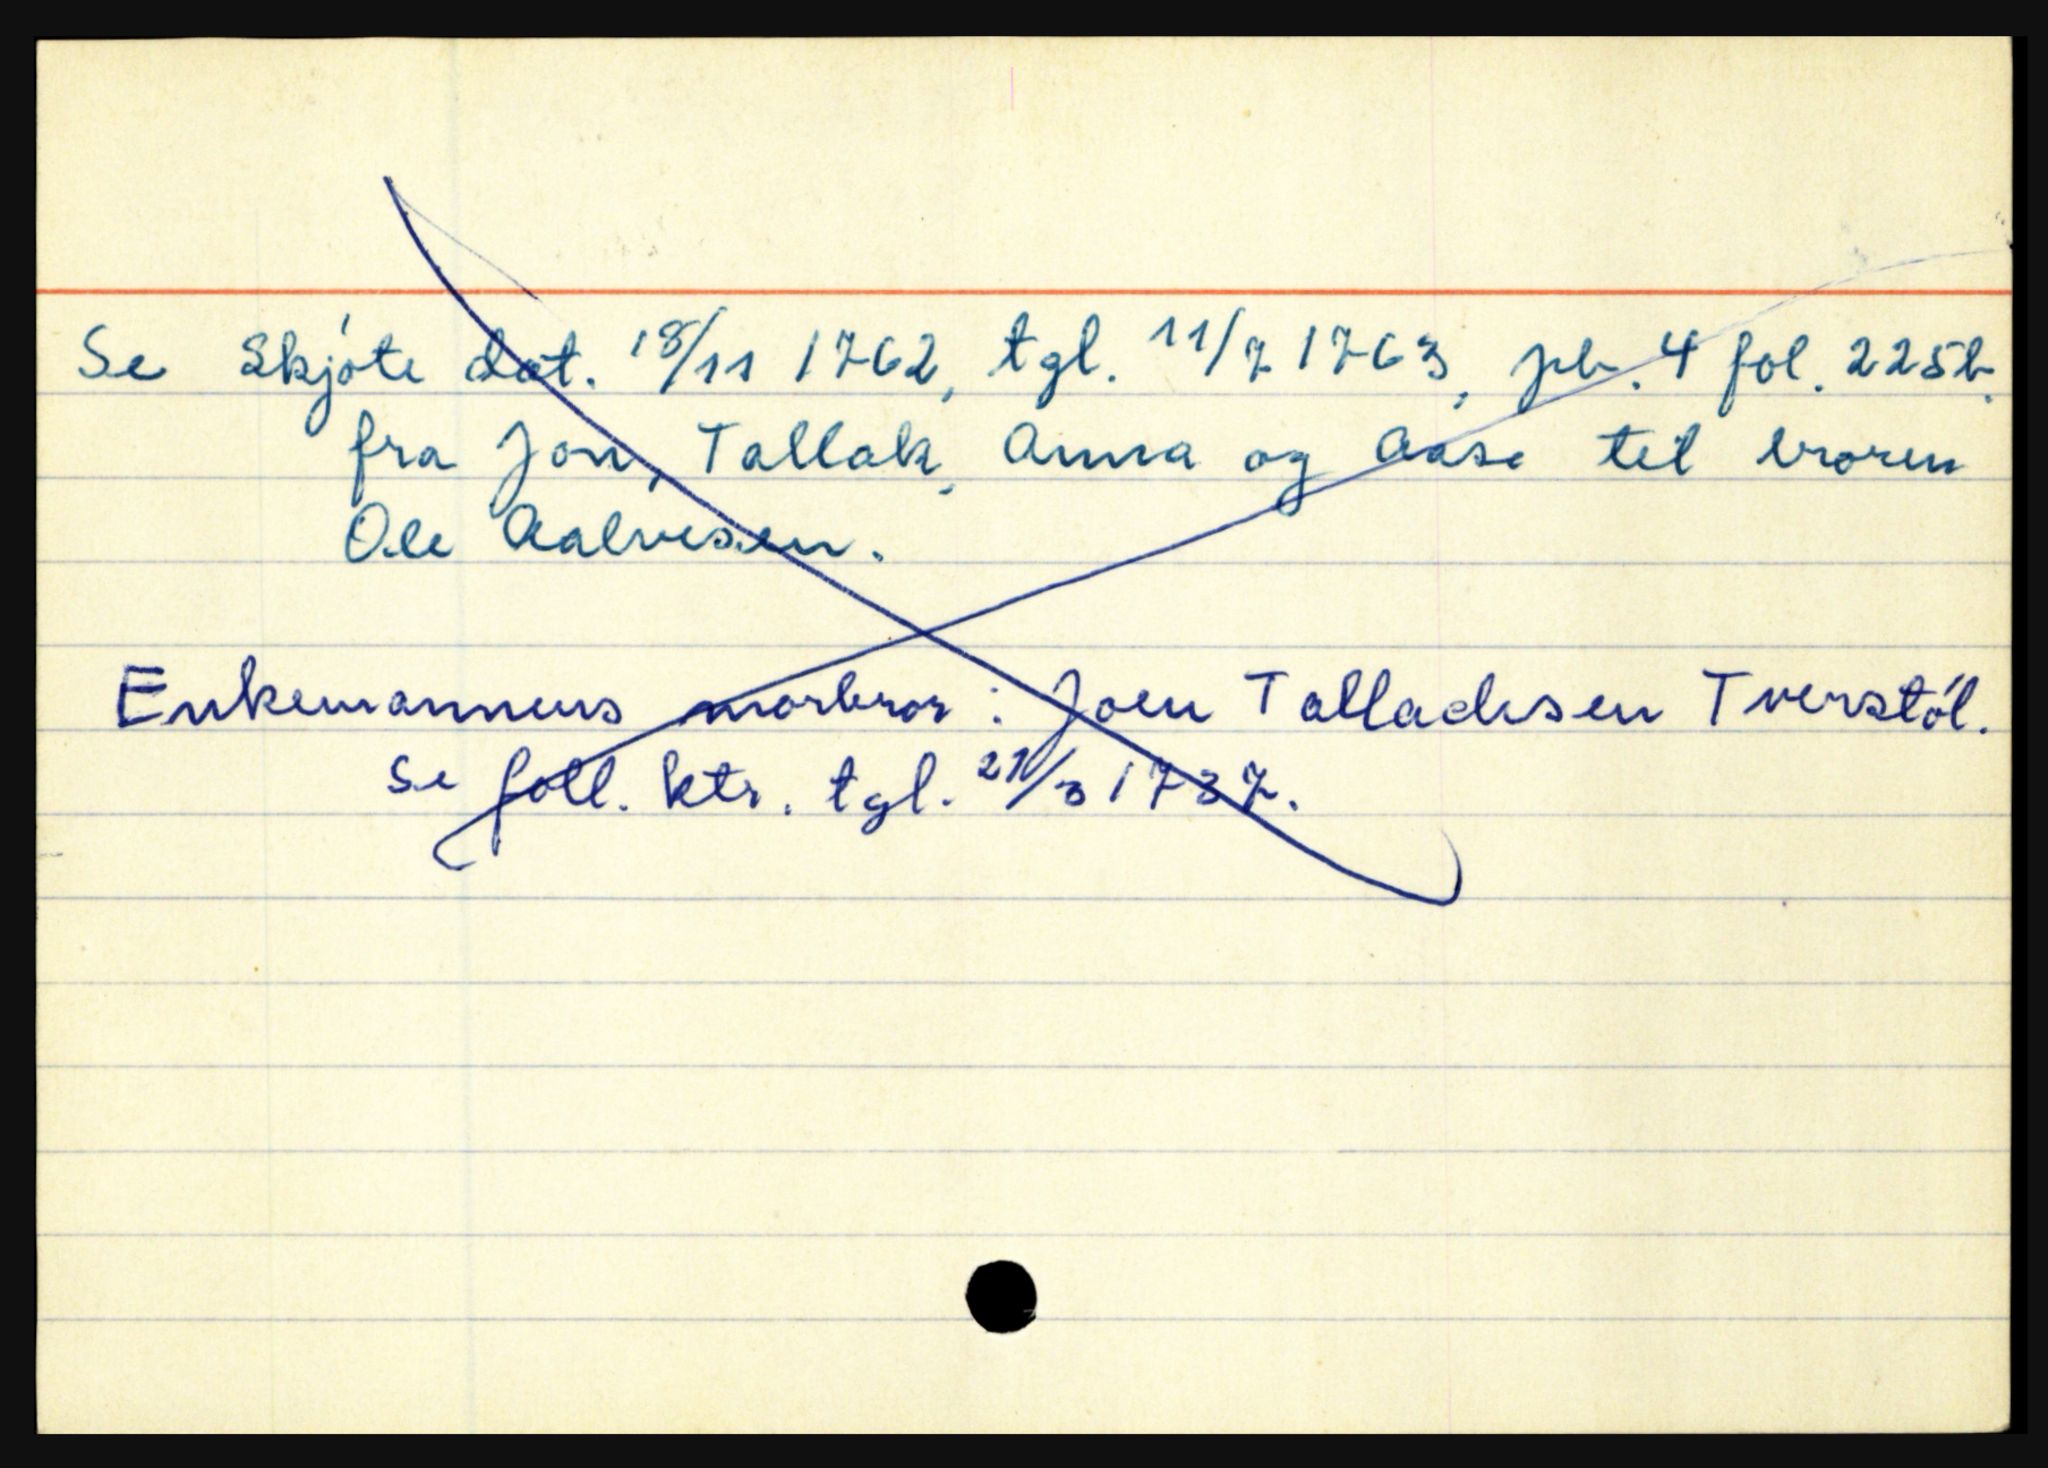 Se Skjøte dat. 18/11 1762, tgl. 11/7 1763, pb. 4 fol. 225b.
fra Jon, Tallak, Anna og Aase til broren
Ole Aalvesen.
Enkemannens morbror: Joen Talladsen Tverstøl.
Se foll. ktr. tgl. 21/3 1737.